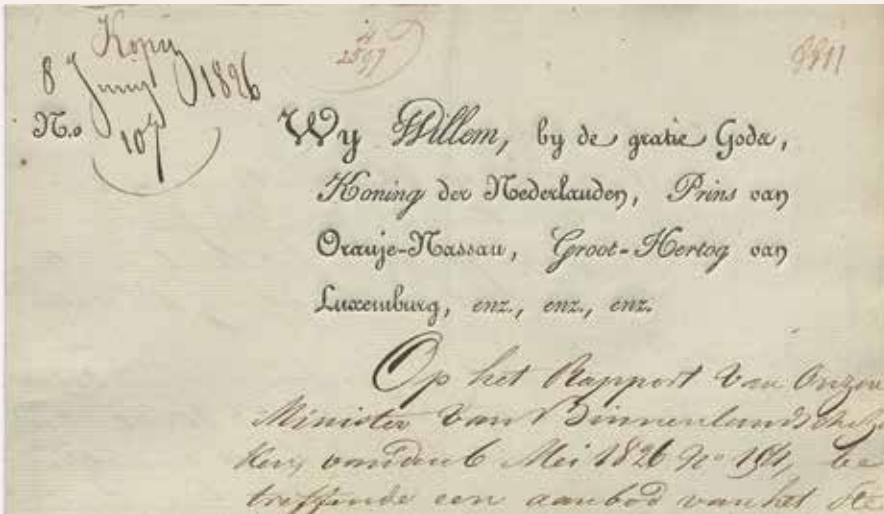 Kopij
8 Junij 1826
N.o 107
in
2597
Wy Willem, by de gratie Gods,
Koning der Nederlanden, Prins van
Oranje-Nassau, Groot-Hertog van
Luxemburg, enz., enz., enz.
Op het Rapport van Onzen
Minister van Binnenlandsche Za
ken van den 6 Mei 1826 No
treffende een aanbod van het Ste